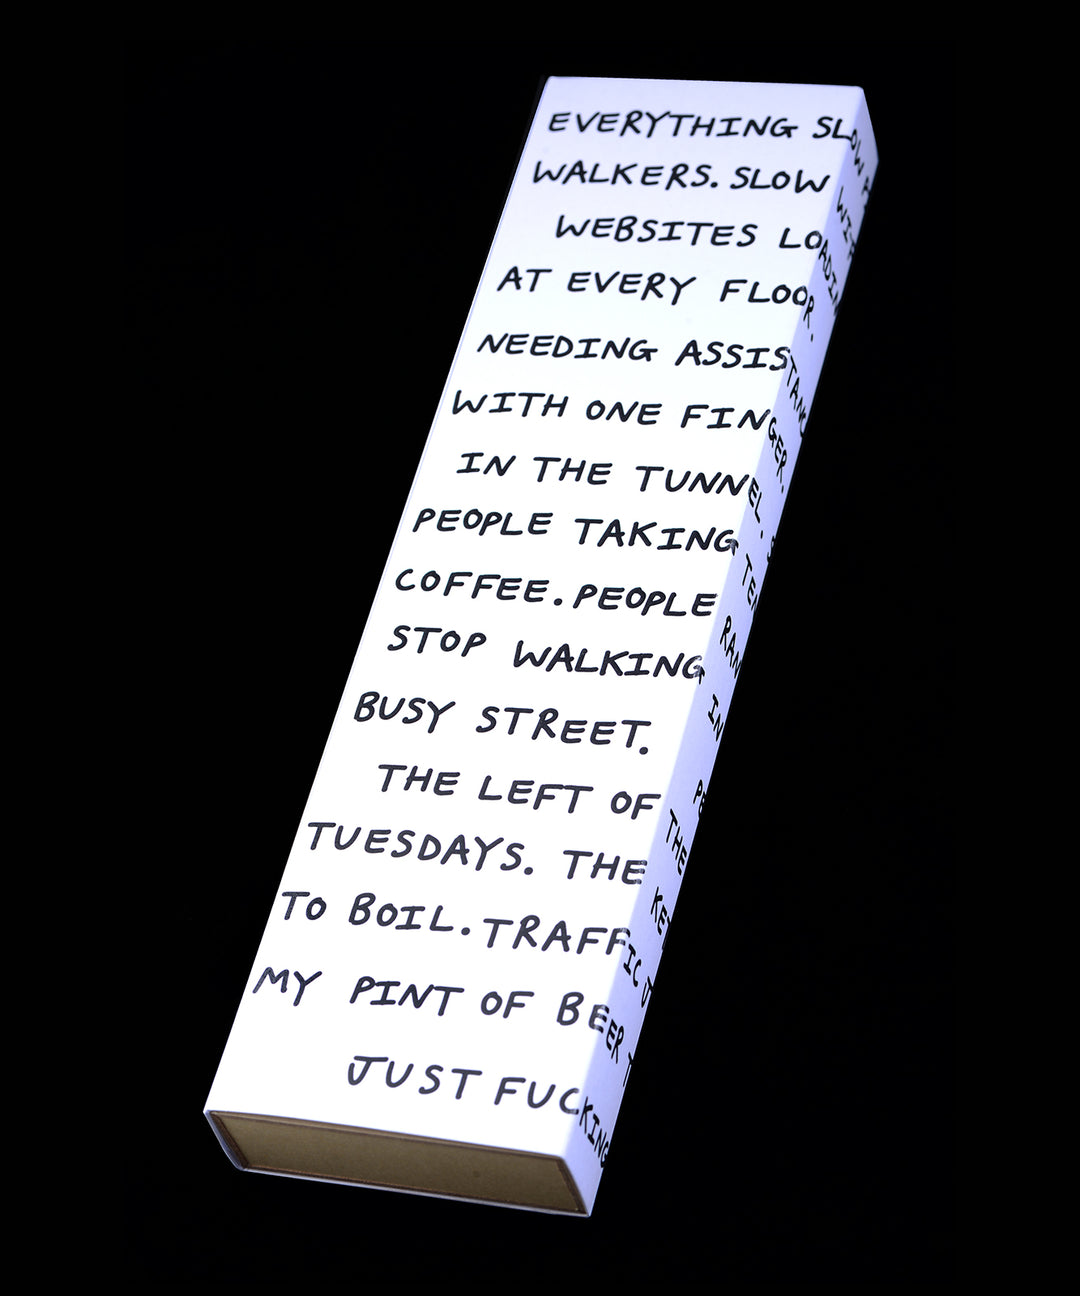 EVERYTHING SLOW
WALKERS. SLOW WITH
WEBSITES LOADING
AT EVERY FLOOR.
NEEDING ASSISTANCE
WITH ONE FINGER.
IN THE TUNNEL.
PEOPLE TAKING
COFFEE. PEOPLE
STOP WALKING IN
BUSY STREET.
THE LEFT OF THE
TUESDAYS. THE
TO BOIL. TRAFFIC
MY PINT OF BEER
JUST FUCKING